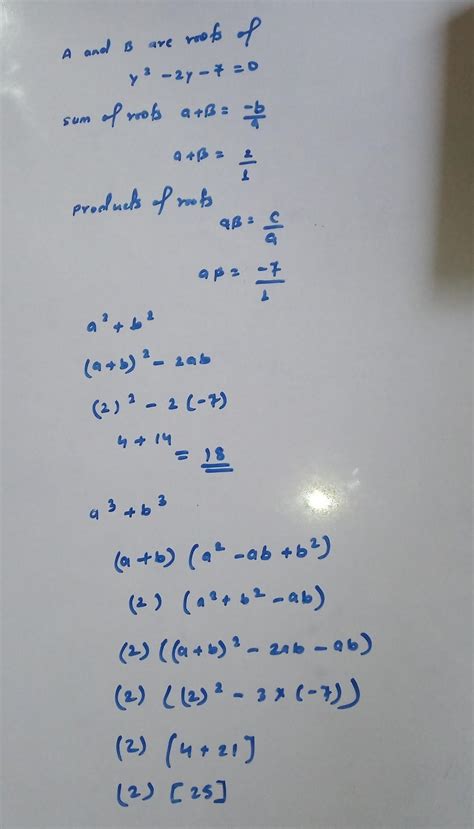 A and B are roots of
y² - 2y - 7 = 0
sum of roots a+B = -b/a
a+B = 2/1
products of roots
aB = c/a
aB = -7/1
a² + b²
(a+b)² - 2ab
(2)² - 2(-7)
4 + 14
= 18
a³ + b³
(a+b) (a² - ab + b²)
(2) (a² + b² - ab)
(2) ((a+b)² - 2ab - ab)
(2) ((2)² - 3 × (-7))
(2) [4 + 21]
(2) [25]